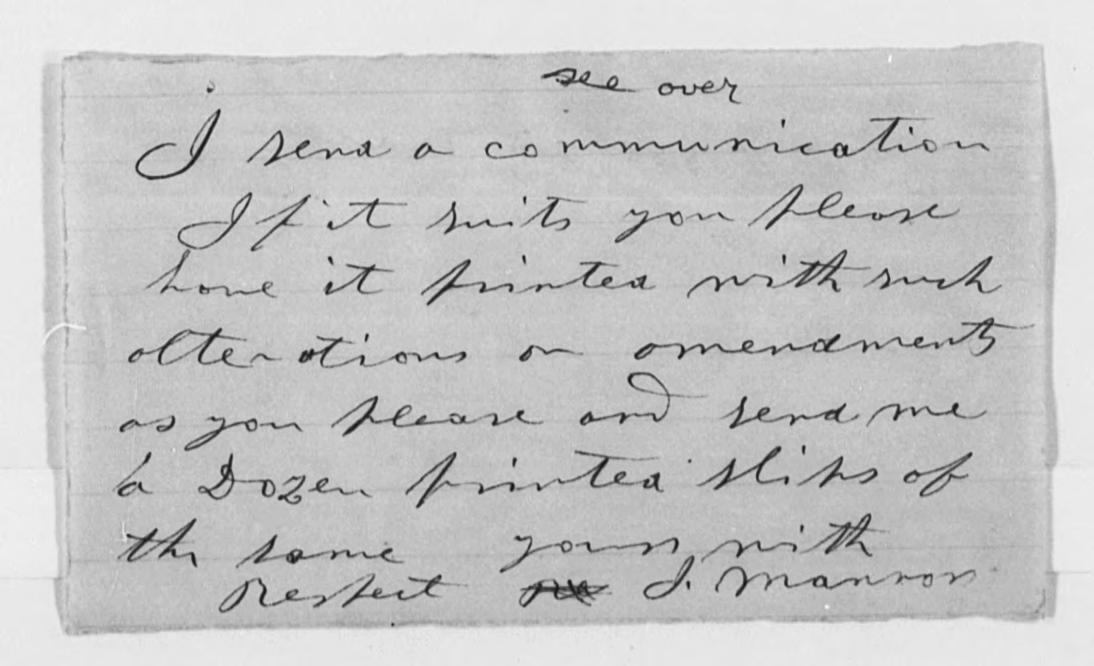 see over
I send a communication
If it suits you please
have it printed with such
alterations or amendments
as you please and send me
a Dozen printed slips of
the same yours with
Respect J. Mannon